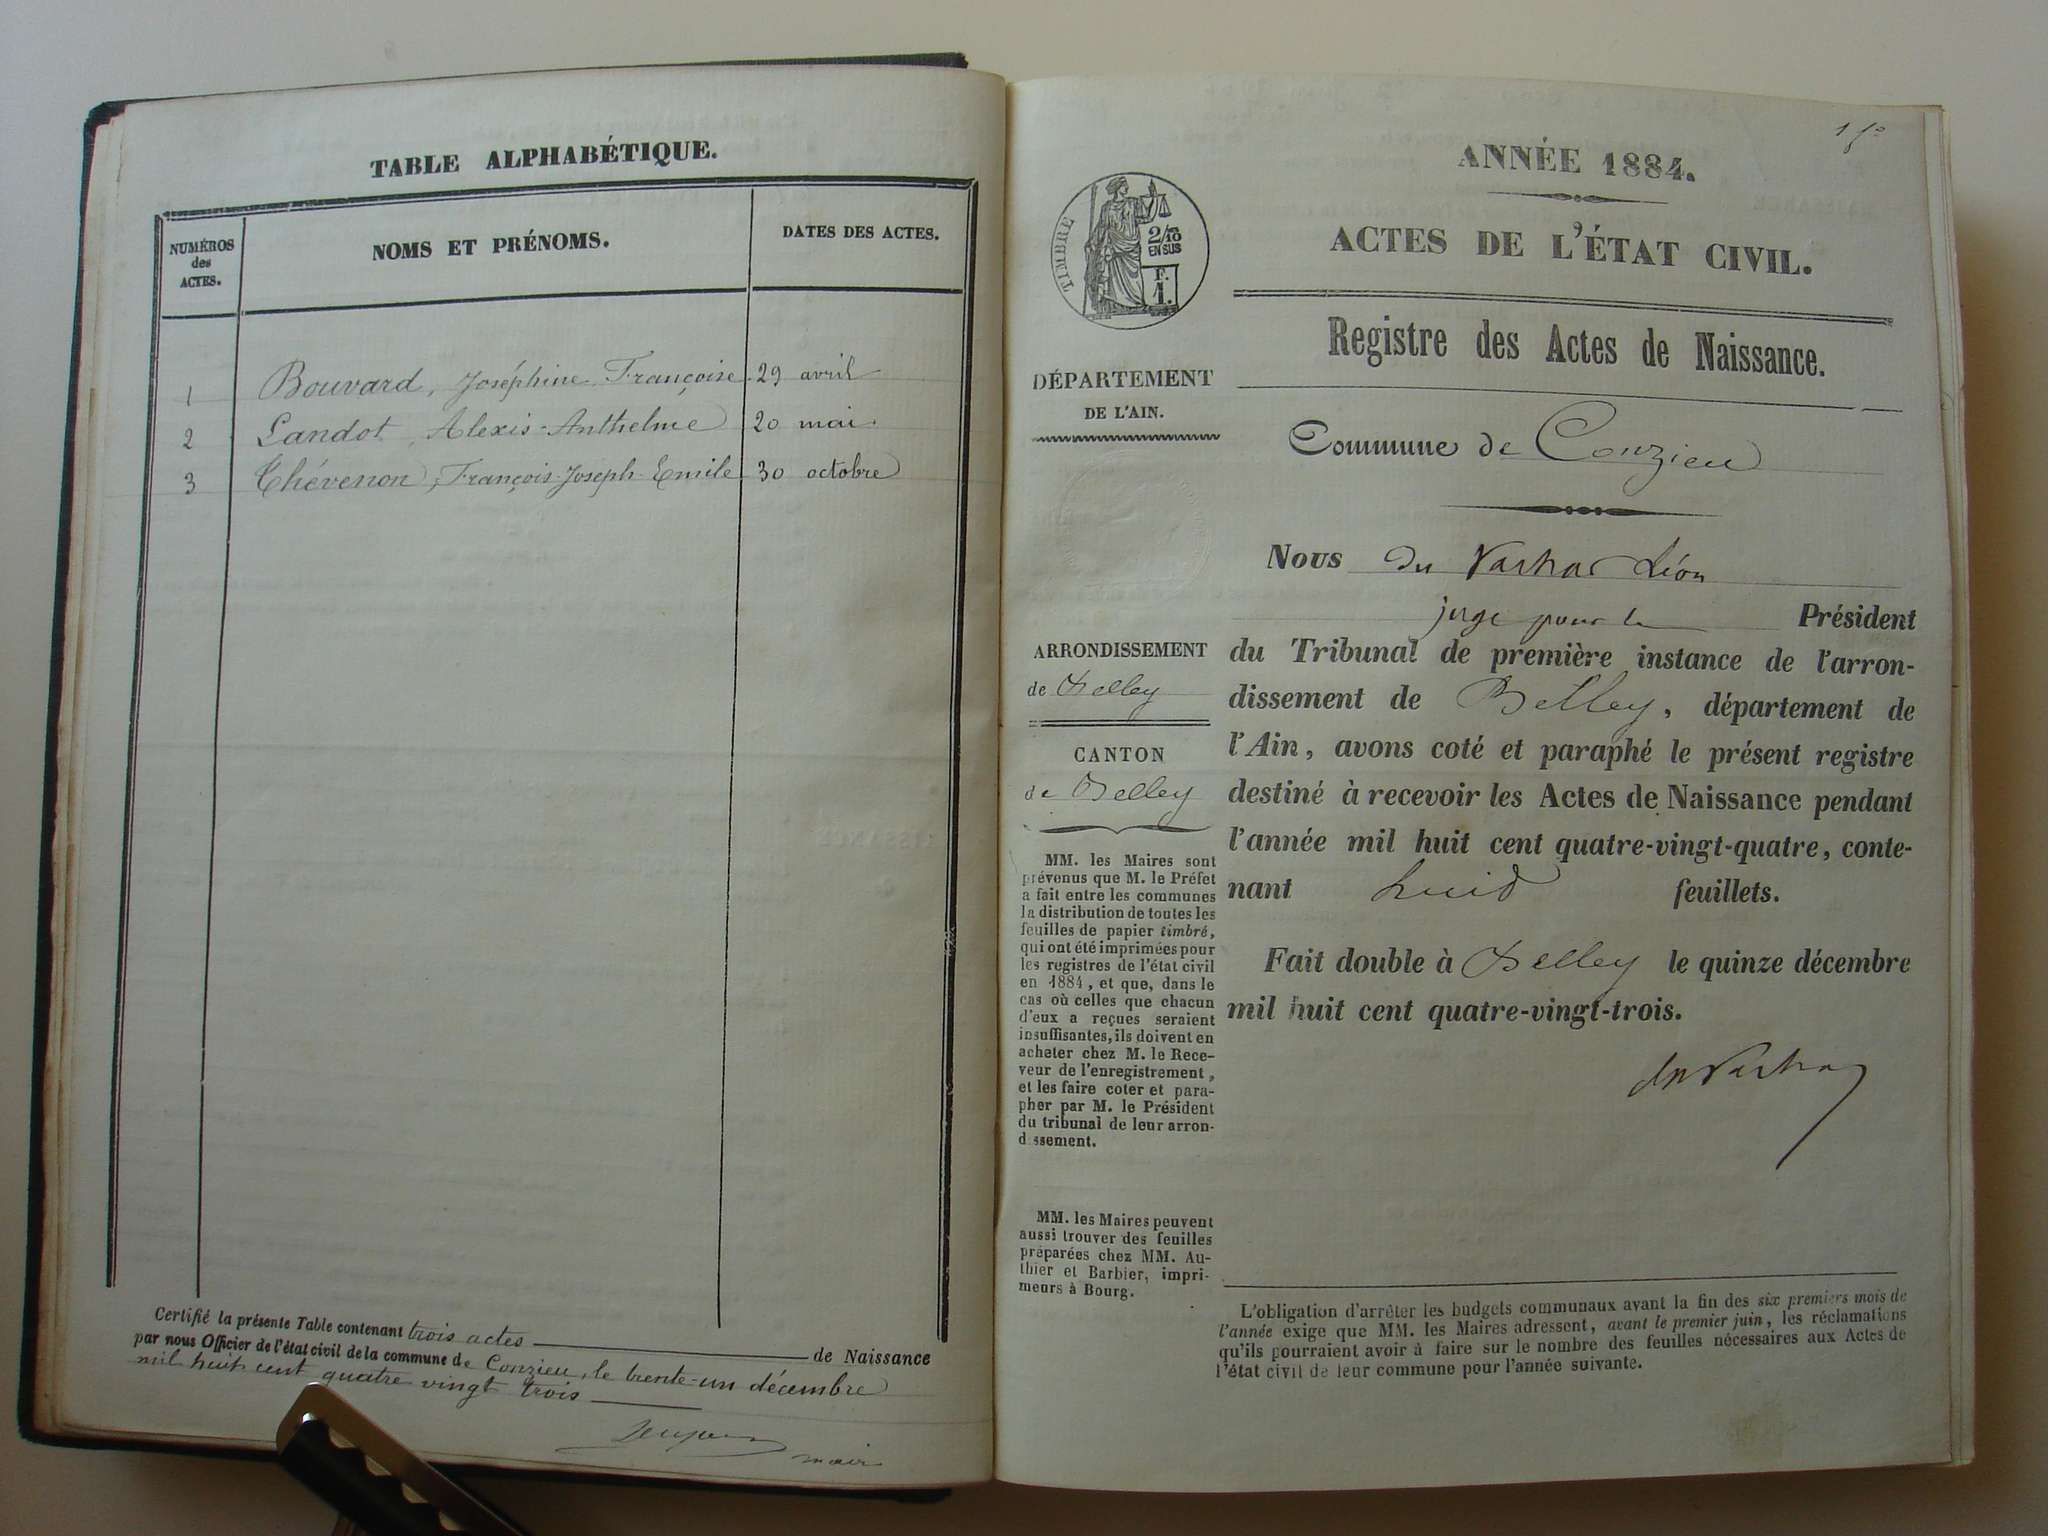 TABLE ALPHABÉTIQUE.
NUMÉROS
des
ACTES.
NOMS ET PRÉNOMS.
DATES DES ACTES.
1 Bouvard, Joséphine Françoise 29 avril
2 Landot, Alexis-Anthelme 20 mai
3 Thévenon, François-Joseph-Emile 30 octobre
Certifié la présente Table contenant trois actes de Naissance
par nous Officier de l'état civil de la commune de Conzieu, le trente-un décembre
mil huit cent quatre vingt trois
maire
1 fo
ANNÉE 1884.
ACTES DE L'ÉTAT CIVIL.
TIMBRE
2/10
EN SUS
F.
1.
Registre des Actes de Naissance.
DÉPARTEMENT
DE L'AIN.
Commune de Conzieu
Nous du Léon
juge pour le Président
du Tribunal de première instance de l'arron-
dissement de Belley, département de
l'Ain, avons coté et paraphé le présent registre
destiné à recevoir les Actes de Naissance pendant
l'année mil huit cent quatre-vingt-quatre, conte-
nant huit feuillets.
Fait double à Belley le quinze décembre
mil huit cent quatre-vingt-trois.
ARRONDISSEMENT
de Belley
CANTON
de Belley
MM. les Maires sont
prévenus que M. le Préfet
a fait entre les communes
la distribution de toutes les
feuilles de papier timbré,
qui ont été imprimées pour
les registres de l'état civil
en 1884, et que, dans le
cas où celles que chacun
d'eux a reçues seraient
insuffisantes, ils doivent en
acheter chez M. le Rece-
veur de l'enregistrement,
et les faire coter et para-
pher par M. le Président
du tribunal de leur arron-
dissement.
MM. les Maires peuvent
aussi trouver des feuilles
préparées chez MM. Au-
thier et Barbier, impri-
meurs à Bourg.
L'obligation d'arrêter les budgets communaux avant la fin des six premiers mois de
l'année exige que MM. les Maires adressent, avant le premier juin, les réclamations
qu'ils pourraient avoir à faire sur le nombre des feuilles nécessaires aux Actes de
l'état civil de leur commune pour l'année suivante.